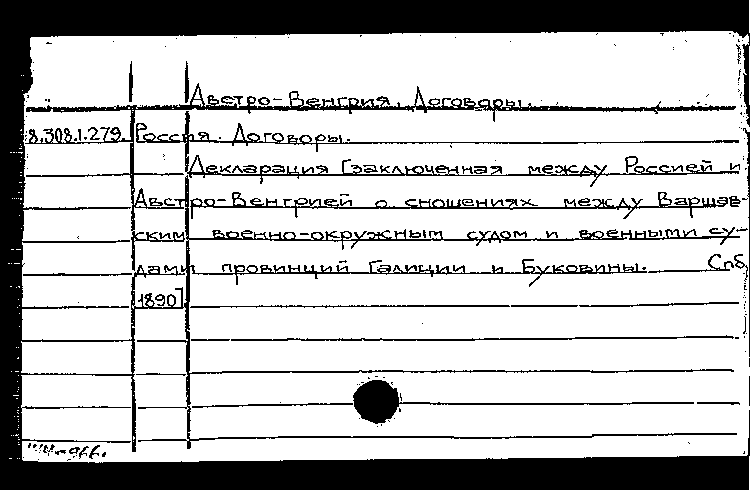 Австро-Венгрия. Договоры.
8.308.1.279. Россия. Договоры.
Декларация [заключенная между Россией и
Австро-Венгрией о сношениях между Варшав-
ским военно-окружным судом и военными су-
дами провинций Галиции и Буковины. Спб
1890]